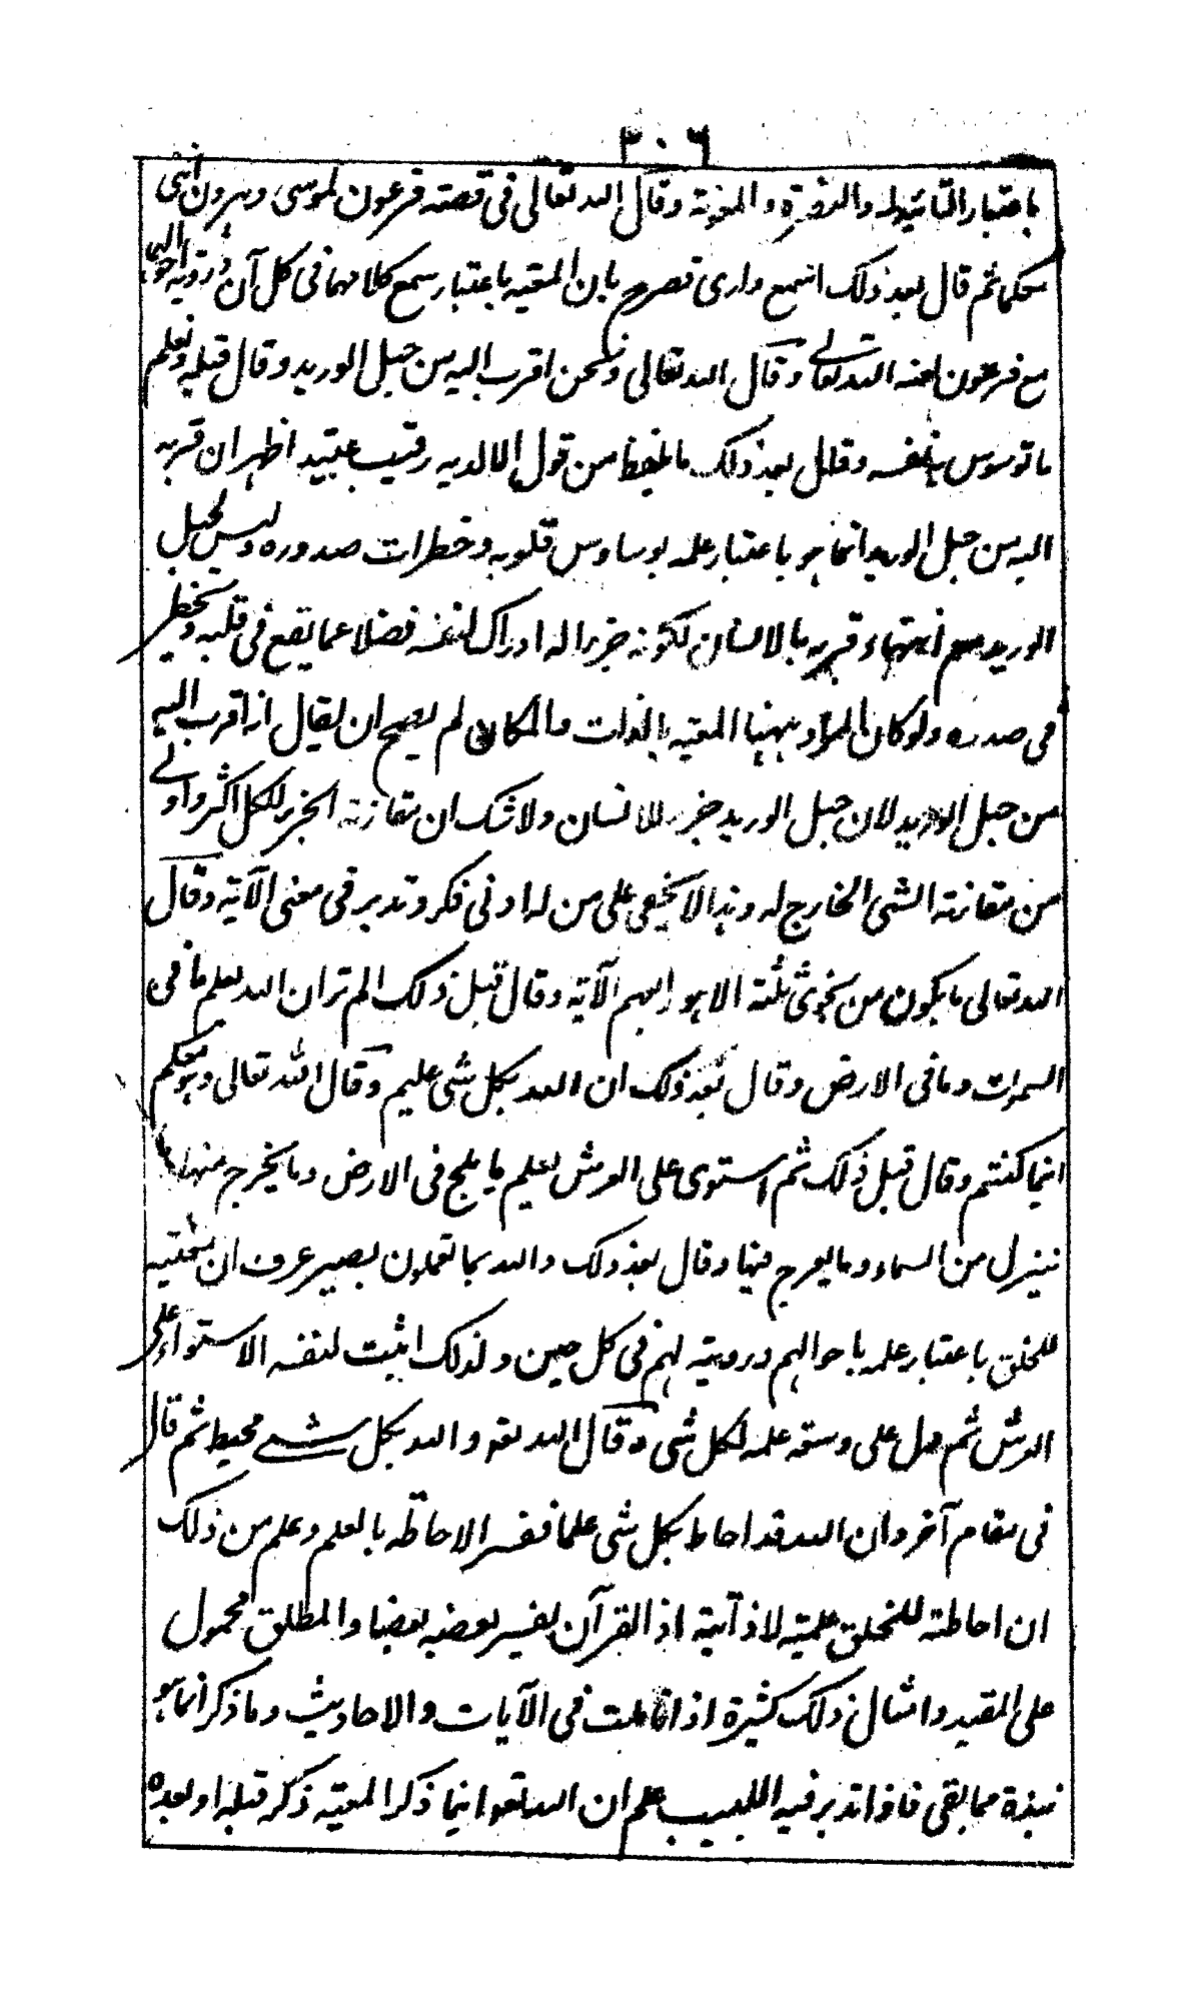 ٣٠٦
باعتبار التائيد له والنصرة والمعونة وقال الله تعالى فى قصته فرعون لموسى وهرون اننى
معكما ثم قال بعد ذلك اسمع وارى فصرح بان المعية باعتبار سمع كلامهما فى كل آن ورؤية احوالهما
مع فرعون لعنه الله تعالى وقال الله تعالى ونحن اقرب اليه من حبل الوريد وقال قبله ونعلم
ما توسوس به نفسه وقال بعد ذلك ما يلفظ من قول الا لديه رقيب عتيد اظهر ان قربه
اليه من حبل الوريد انما هو باعتبار علمه بوساوس قلوبه وخطرات صدوره وليس لحبل
الوريد مع انتهاء قربه بالانسان لكونه جزءا له ادراك لنفسه فضلا عما يقع فى قلبه ويخطر
فى صدره ولو كان المراد ههنا المعية بالذات والمكان لم يصح ان يقال انه اقرب اليه
من حبل الوريد لان حبل الوريد جزء للانسان ولا شك ان مقارنة الجزء للكل اكثر واولى
من مقارنة الشى الخارج له وهذا لا يخفى على من له ادنى فكر وتدبر فى معنى الآية وقال
الله تعالى ما يكون من نجوى ثلثة الا هو رابعهم الآية وقال قبل ذلك الم تر ان الله يعلم ما فى
السموات وما فى الارض وقال بعد ذلك ان الله بكل شى عليم وقال الله تعالى وهو معكم
اينما كنتم وقال قبل ذلك ثم استوى على العرش يعلم ما يلج فى الارض وما يخرج منها وما
ينزل من السماء وما يعرج فيها وقال بعد ذلك والله بما تعملون بصير عرف ان معيته
للخلق باعتبار علمه باحوالهم ورويته لهم فى كل حين ولذلك اثبت لنفسه الاستواء على
العرش ثم دل على وسعة علمه لكل شى وقال الله تعه والله بكل شى محيط ثم قال
فى مقام آخر وان الله قد احاط بكل شى علما ففسر الاحاطة بالعلم وعلم من ذلك
ان احاطته للخلق علمية لا ذاتية اذ القرآن يفسر بعضه بعضا والمطلق محمول
على المقيد وامثال ذلك كثيرة اذا تاملت فى الآيات والاحاديث وما ذكر انما هو
نبذة مما بقى فاذا تدبر فيه اللبيب علم ان الله تعه اينما ذكر المعية ذكر قبله او بعده